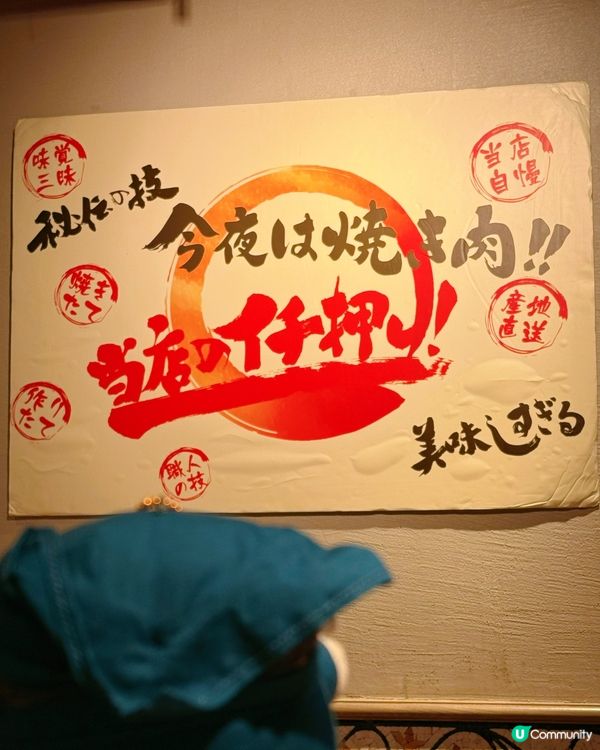 味覚
三昧
当店
自慢
秘伝の技
今夜は焼き肉!!
焼き
たて
産地
直送
当店のイチ押し!
作り
たて
美味しすぎる
職人
の技
U Community